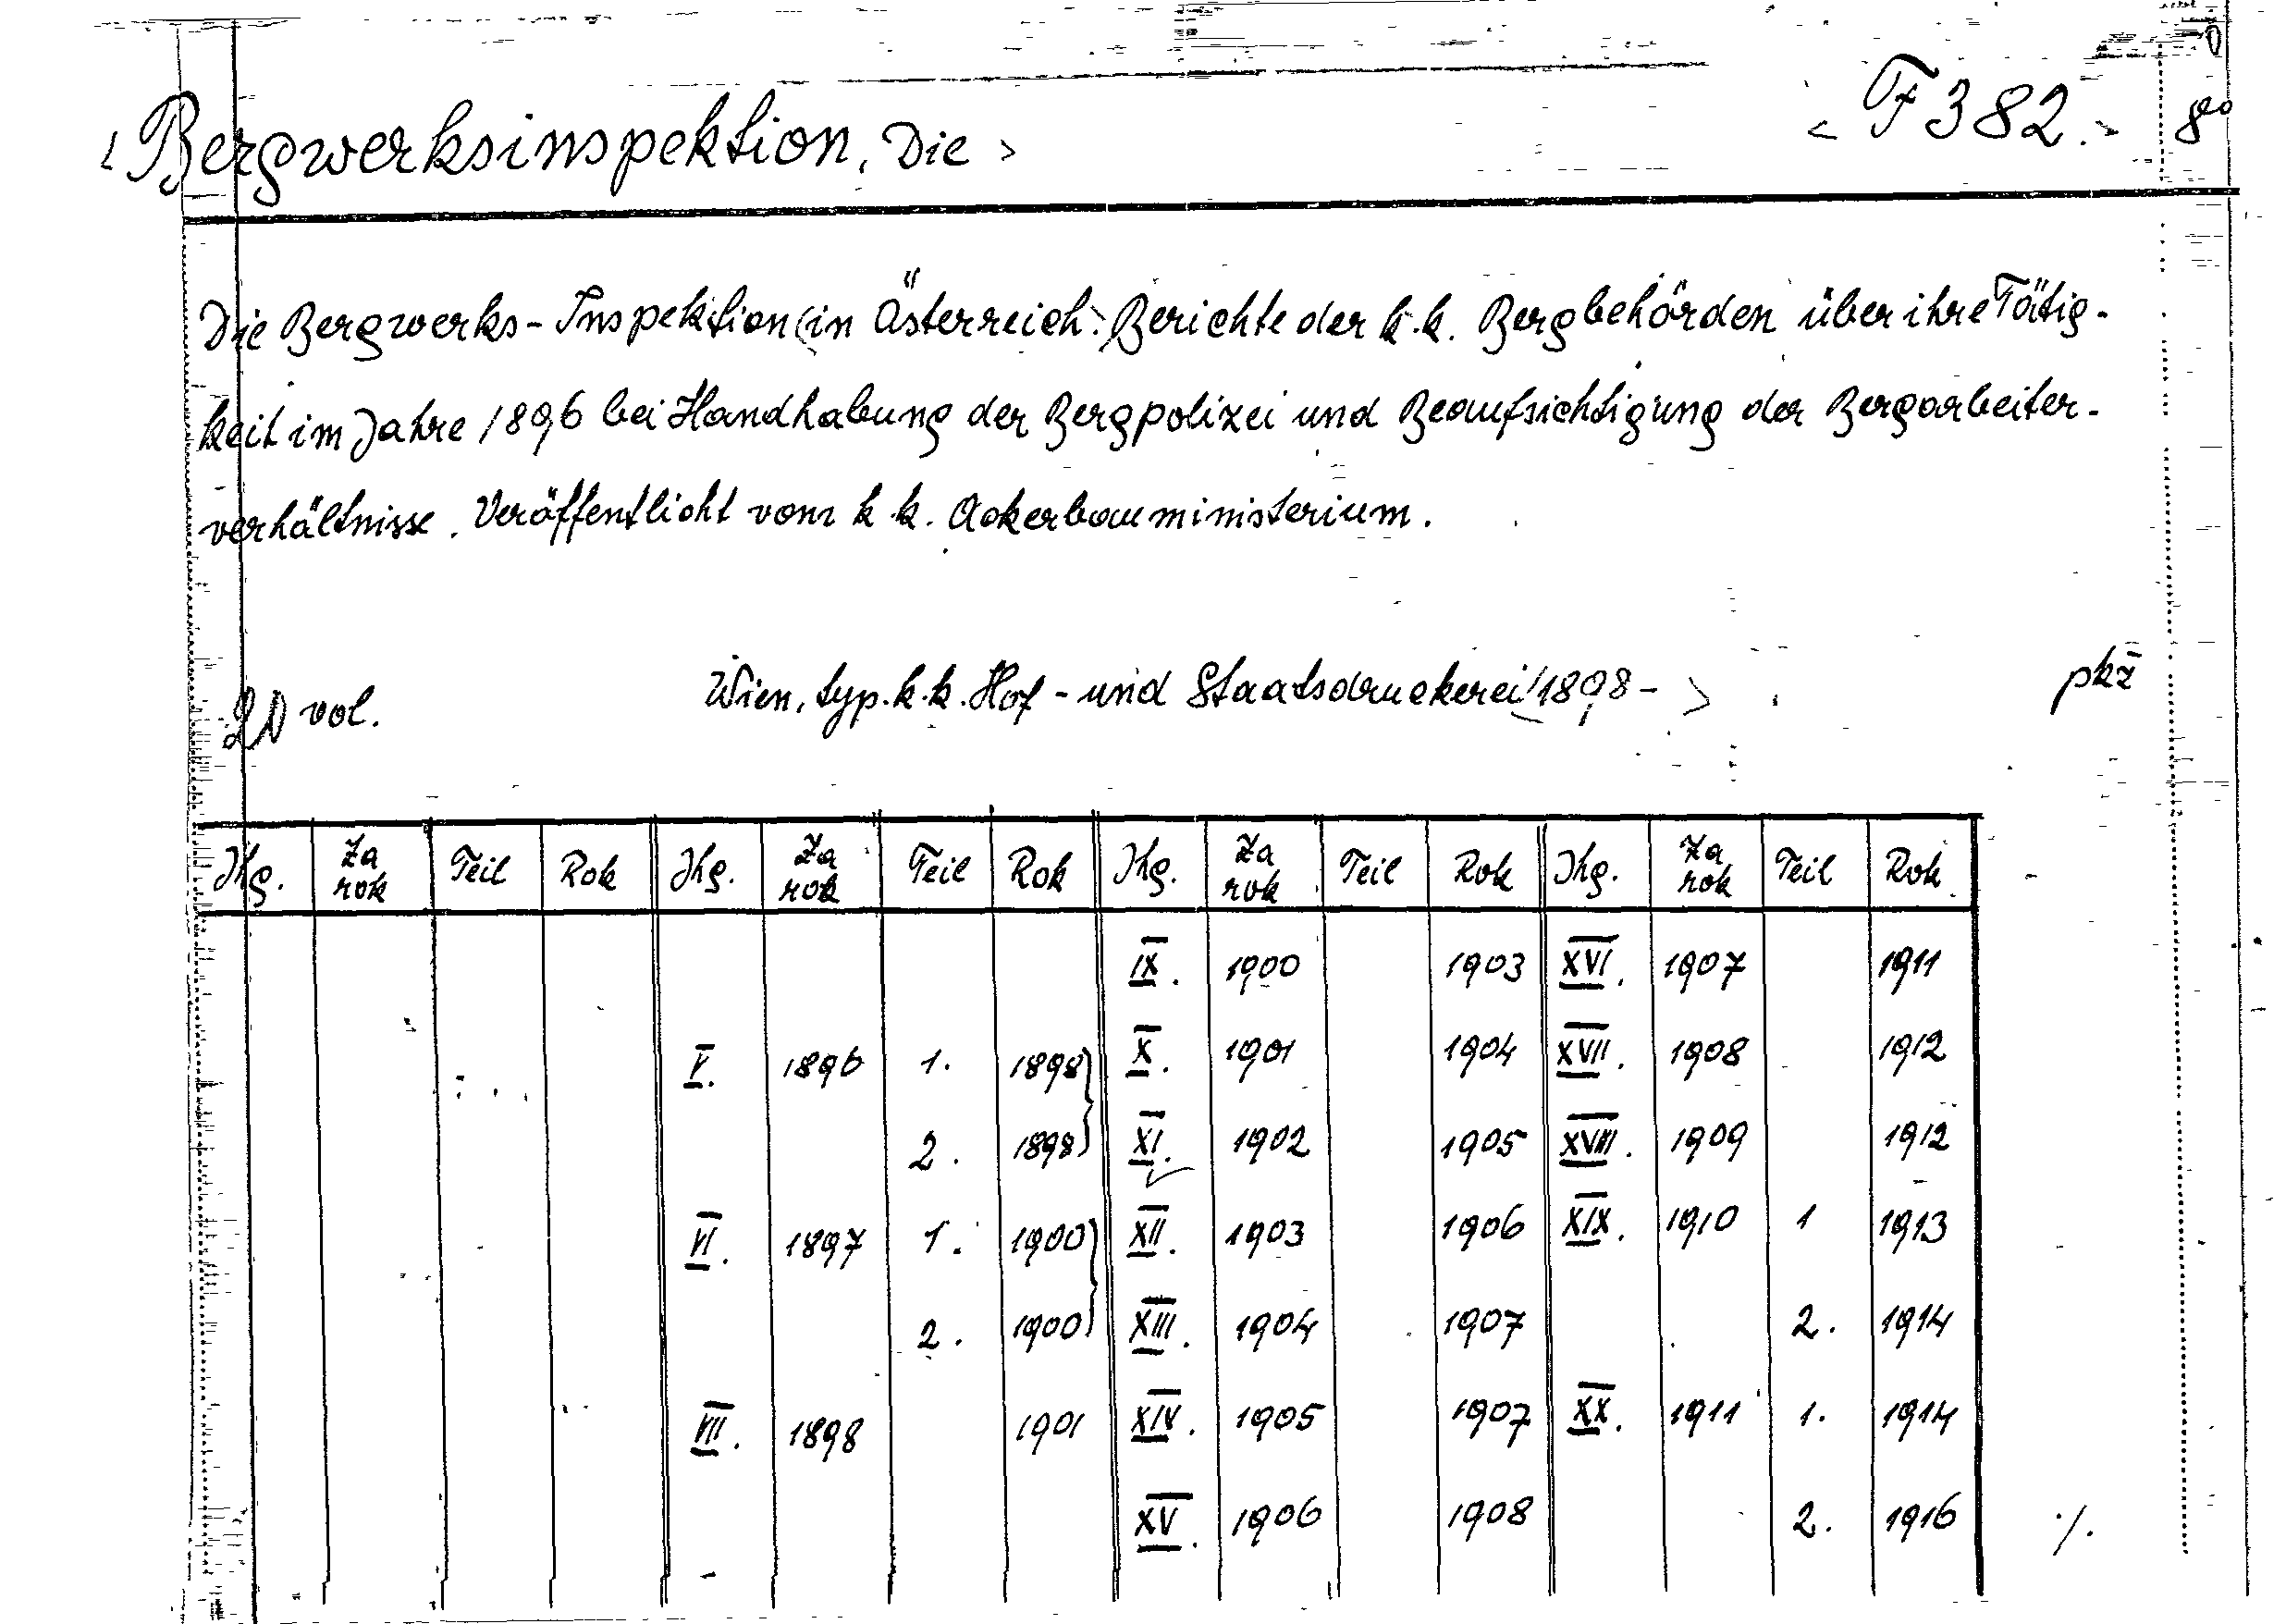 < Bergwerksinspektion, Die > < F 382. > 8°
Die Bergwerks-Inspektion (in Österreich.) Berichte der k.k. Bergbehörden über ihre Tätig-
keit im Jahre 1896 bei Handhabung der Bergpolizei und Beaufsichtigung der Bergarbeiter-
verhältnisse. Veröffentlicht vom k.k. Ackerbauministerium.
vol. Wien, typ. k.k. Hof- und Staatsdruckerei <1898- > pkž
Jhg. Za rok Teil Rok Jhg. Za rok Teil Rok Jhg. Za rok Teil Rok Jhg. Za rok Teil Rok
IX. 1900 1903 XVI. 1907 1911
V. 1896 1. 1898 X. 1901 1904 XVII. 1908 1912
2. 1898 XI. 1902 1905 XVIII. 1909 1912
VI. 1897 1. 1900 XII. 1903 1906 XIX. 1910 1 1913
2. 1900 XIII. 1904 1907 2. 1914
VII. 1898 1901 XIV. 1905 1907 XX. 1911 1. 1914
XV. 1906 1908 2. 1916 ./.